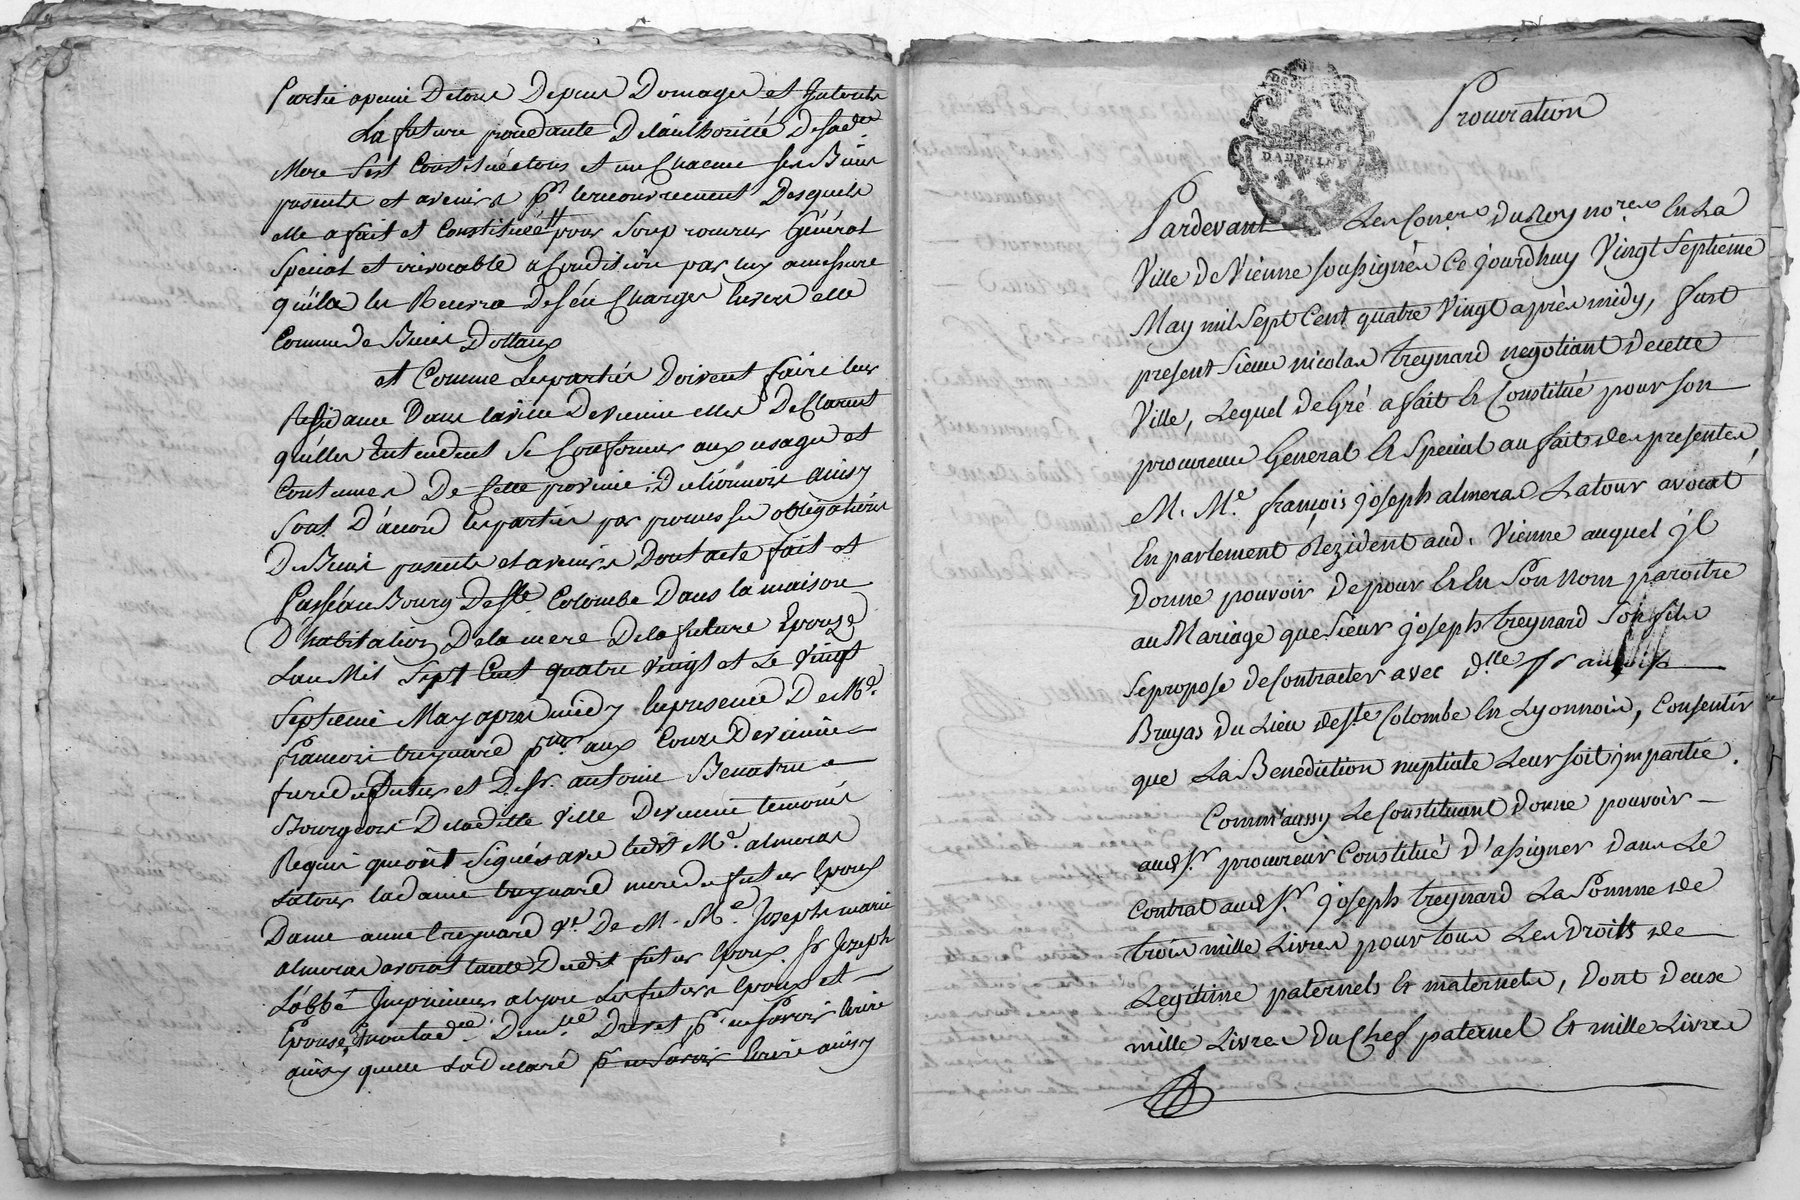 Partie a peine De tous Depens Domages et Interests
La future procedante De l'authorité De sad.e
Mere s'est Constituée tous et un Chacuns ses Biens
presents et avenirs pr le recouvrement Desquels
elle a fait et Constitué pour Son procureur Général
Special et irrévocable
qu'il les Recevra
Comme de Biens Dottaux
et Comme les parties Doivent faire leur
Residance Dans la ville De vienne elles Declarent
qu'elles Entendent Se Conformer aux usages et
Coutumes De Cette province Du lionnois ainsy
Sont D'acord les parties par promesse obligations
De Biens presents et avenirs Dont acte fait et
Passé au Bourg De Ste. Colombe Dans la maison
D'habitation De la mere De la future Epouse
L'an Mil Sept Cent quatre vingt et Le vingt
Septieme May apres midy En presence De Me.
francois treynard pr. aux Cours De vienne
frere du futur et D. Sr. antoine
Bourgeois De la ditte Ville De vienne temoins
Requis qui ont Signés avec ledt Me. almeras
Latour la dame treynard mere du futur Epoux
Dame anne treynard De M. Me. Joseph marie
almeras avocat tante Dudit futur Epoux Sr Joseph
Labbé les futurs Epoux et
Epouse Savoir Ecrire
ainsy quelle l'a declaré pr ne Savoir Ecrire ainsy
DAUPHINE
Procuration
Pardevant Les Coners. Du Roy nores. En La
Ville De Vienne soussignés Ce jourdhuy Vingt Septieme
May mil Sept Cent quatre Vingt après midy, fust
present Sieur nicolas treynard negotiant De cette
Ville, Lequel de Gré a fait & Constitué pour son
procureur General & Special au fait des presentes
M. Me. françois joseph almeras Latour avocat
En parlement Rezident aud. Vienne auquel jl
Donne pouvoir De pour & En Son nom paroitre
au Mariage que Sieur joseph treynard Son fils
Se propose de Contracter avec Dlle
Bruyas Du Lieu de Ste Colombe En Lyonnois, Consentir
que La Benediction nuptiale Leur soit jmpartie.
Comm'aussy Le Constituant Donne pouvoir
aud Sr. procureur Constitué D'assigner Dans Le
Contrat aud Sr. joseph treynard La Somme de
trois mille Livres pour tous Les Droits de
Legitime paternels & maternels, Dont deux
mille Livres Du Chef paternel Et mille Livres